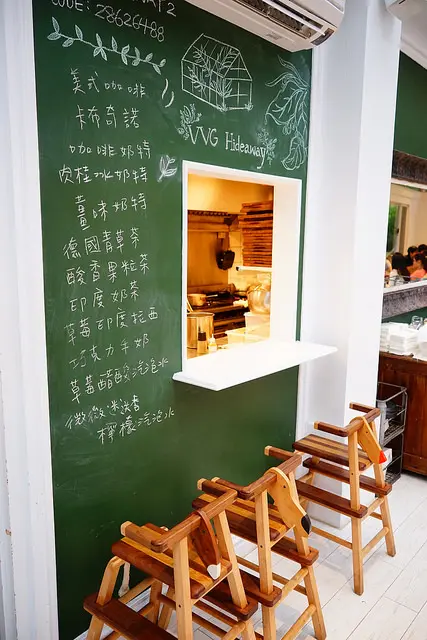 CODE: 28626488
VVG Hideaway
美式咖啡
卡布奇諾
咖啡奶特
肉桂冰奶特
薑味奶特
德國青草茶
酸香果粒茶
印度奶茶
草莓印度拉西
巧克力牛奶
草莓醋酸汽泡冰
微微迷迭香
檸檬汽泡冰